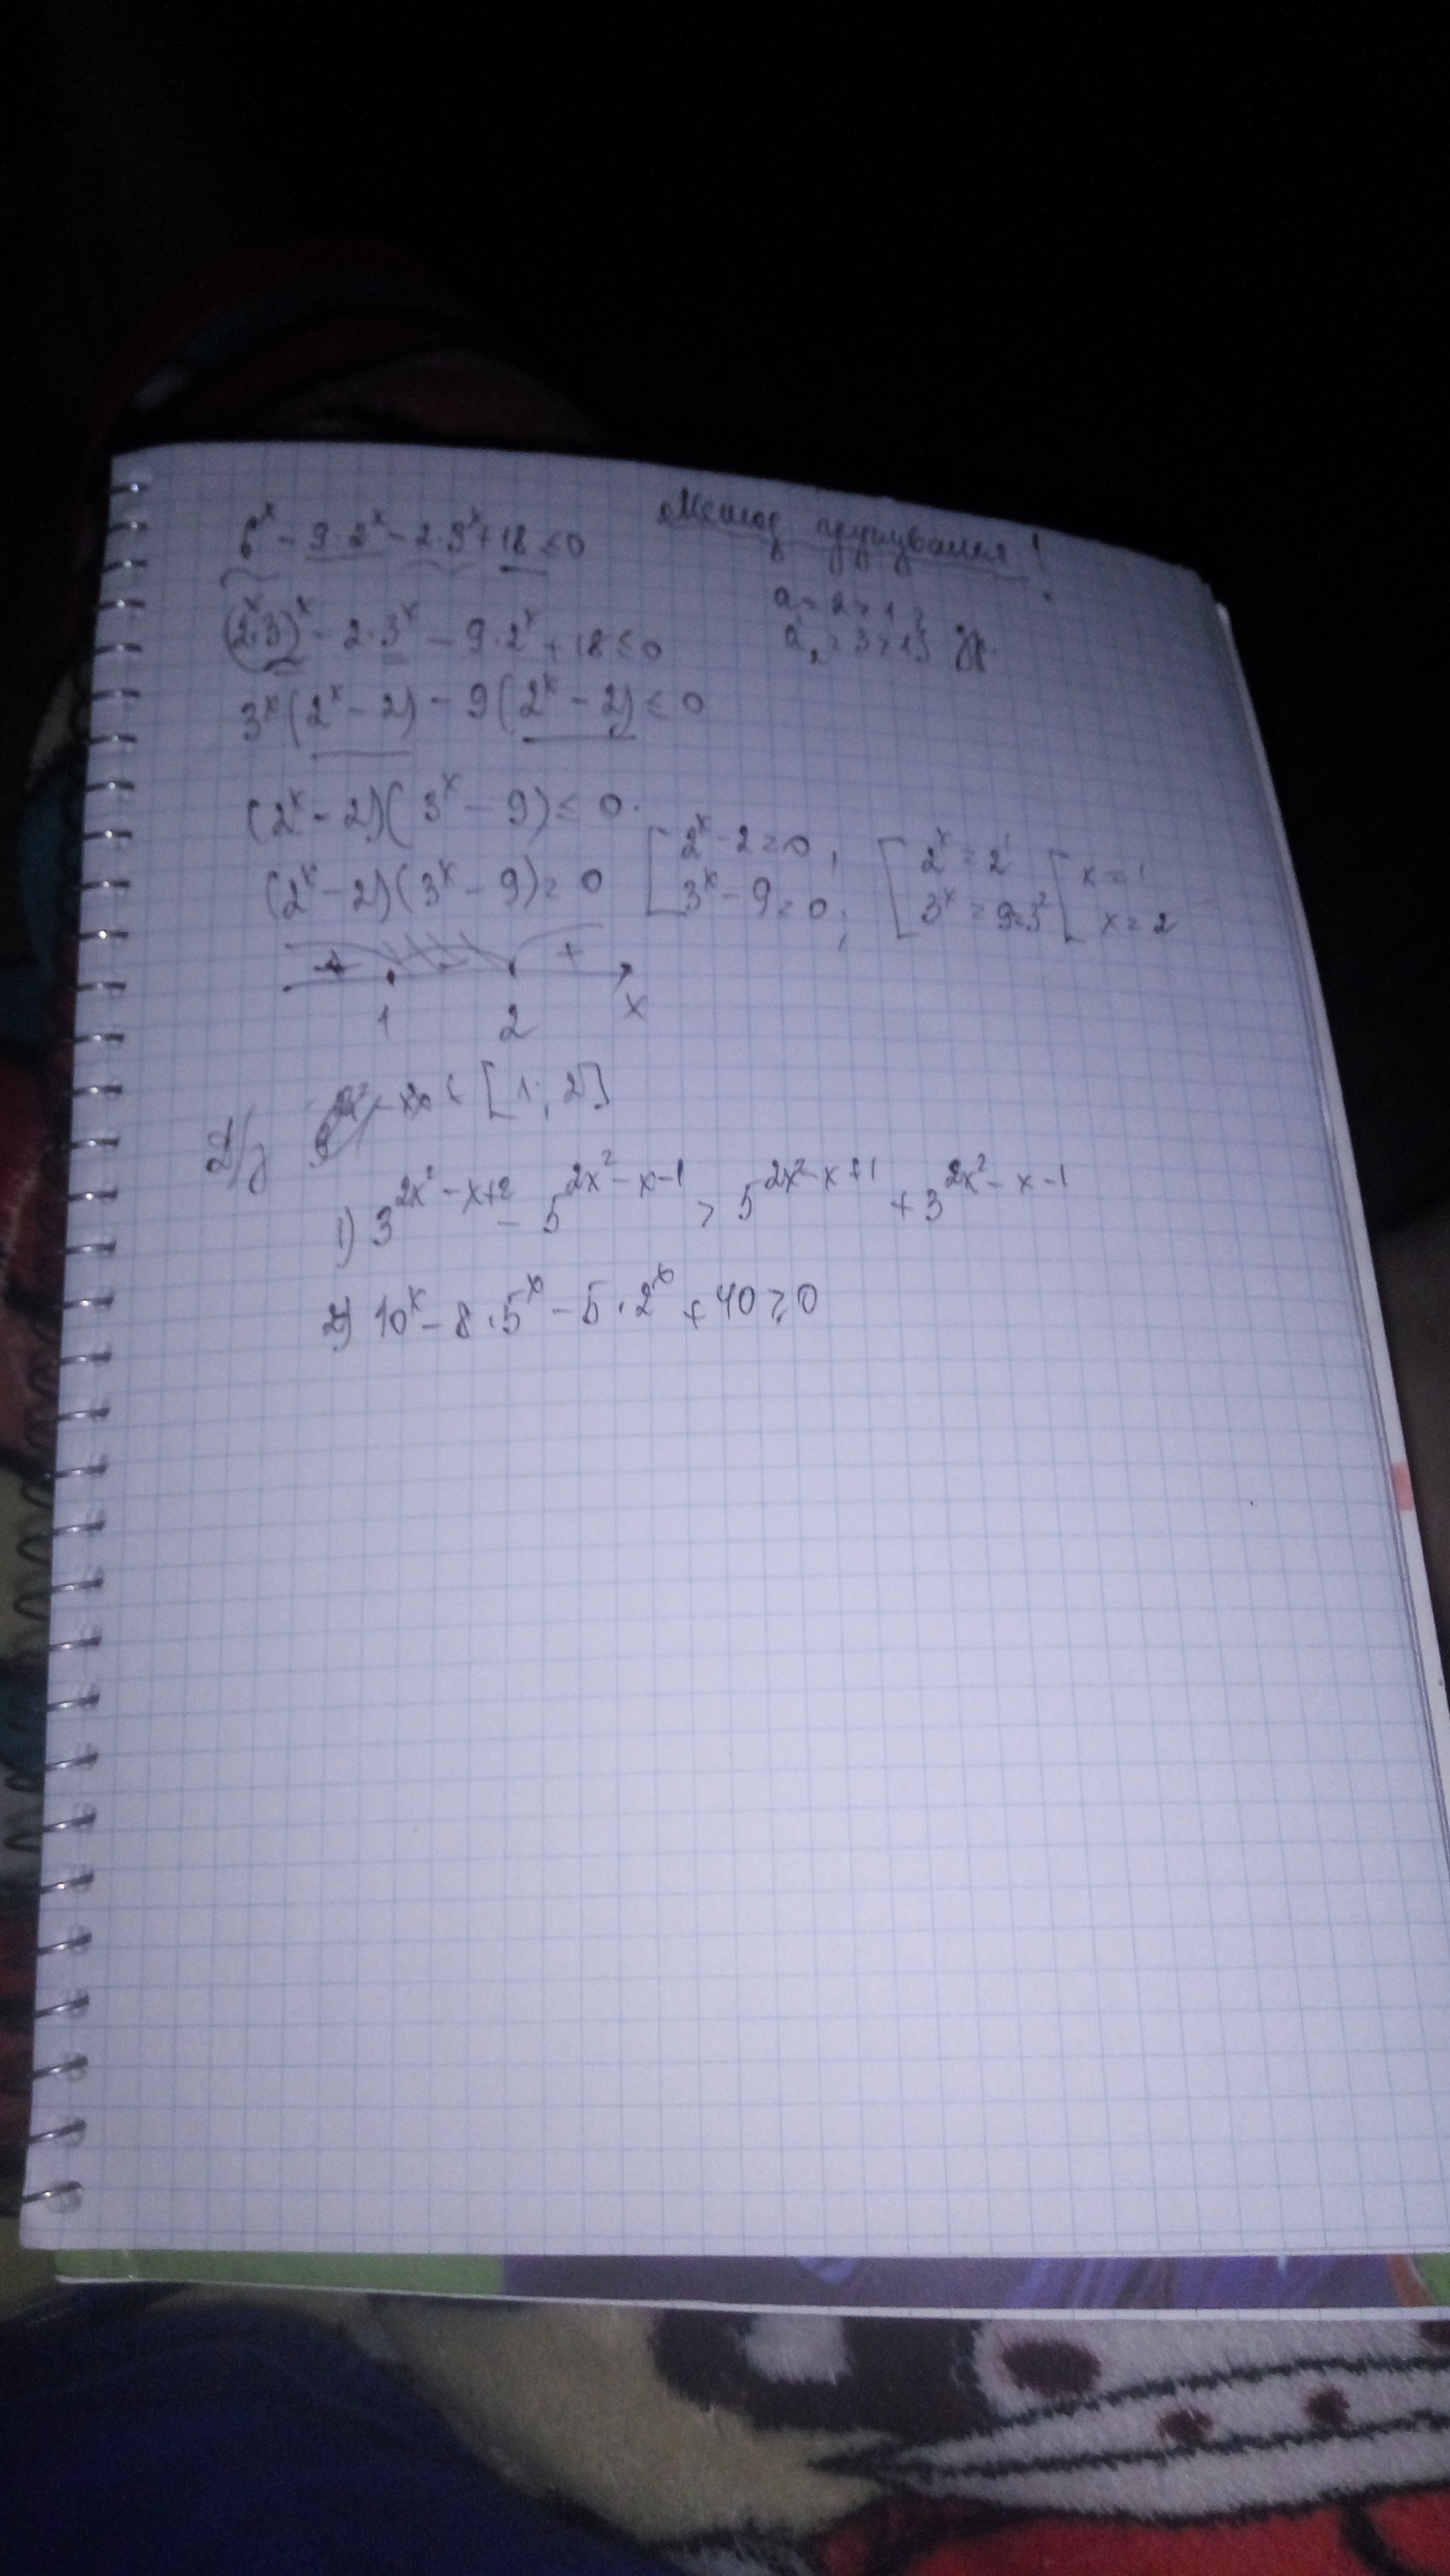 Метод групування!
6ˣ - 9·2ˣ - 2·3ˣ + 18 ≤ 0
a₁ = 2 > 1
a₂ = 3 > 1
(2·3)ˣ - 2·3ˣ - 9·2ˣ + 18 ≤ 0
3ˣ(2ˣ - 2) - 9(2ˣ - 2) ≤ 0
(2ˣ - 2)(3ˣ - 9) ≤ 0.
(2ˣ - 2)(3ˣ - 9) = 0 [2ˣ - 2 = 0, 3ˣ - 9 = 0; [2ˣ = 2¹ 3ˣ = 9 = 3² [x = 1 x = 2
+ - +
1 2 x
[1; 2]
Д/з
1) 3^(2x² - x + 2) - 5^(2x² - x - 1) > 5^(2x² - x + 1) + 3^(2x² - x - 1)
2) 10ˣ - 8·5ˣ - 5·2ˣ + 40 ≥ 0